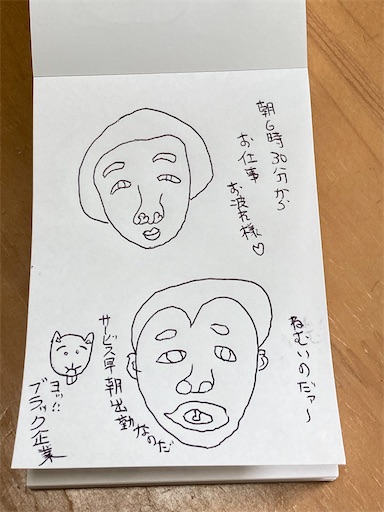 朝6時30分から
お仕事
お波れ様♡
ねむいのだァ〜
サービス早朝出勤なのだ
ヨッ!!
ブラック企業